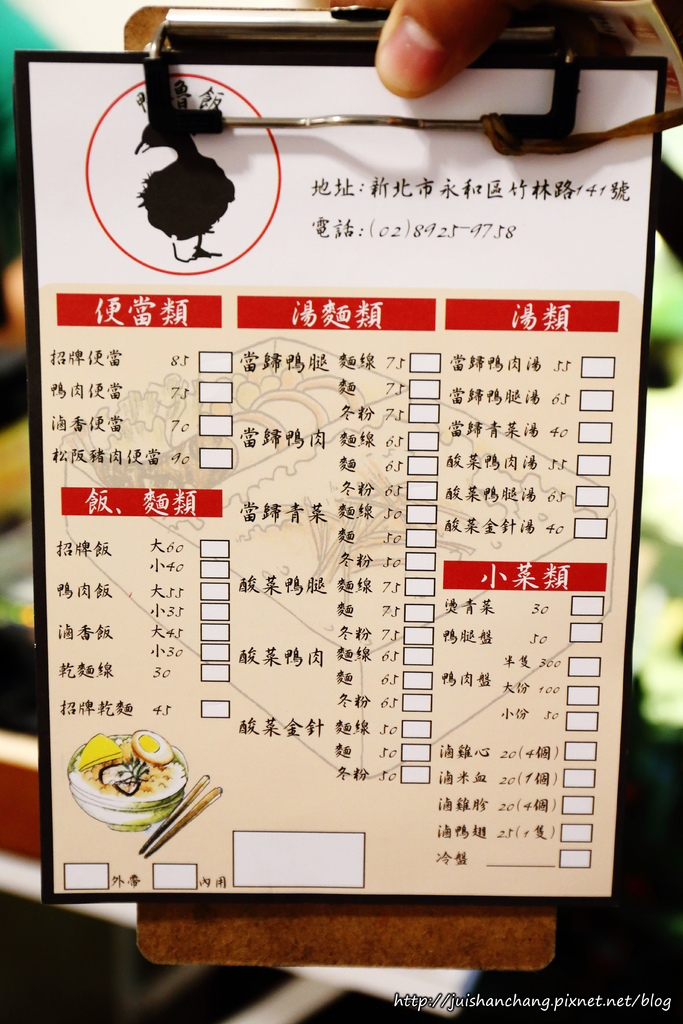 鴨魯飯
地址:新北市永和區竹林路141號
電話:(02)8925-9758
便當類
招牌便當 85
鴨肉便當 75
滷香便當 70
松阪豬肉便當 90
飯、麵類
招牌飯 大60
小40
鴨肉飯 大55
小35
滷香飯 大45
小30
乾麵線 30
招牌乾麵 45
外帶 內用
湯麵類
當歸鴨腿 麵線 75
麵 75
冬粉 75
當歸鴨肉 麵線 65
麵 65
冬粉 65
當歸青菜 麵線 50
麵 50
冬粉 50
酸菜鴨腿 麵線 75
麵 75
冬粉 75
酸菜鴨肉 麵線 65
麵 65
冬粉 65
酸菜金針 麵線 50
麵 50
冬粉 50
湯類
當歸鴨肉湯 55
當歸鴨腿湯 65
當歸青菜湯 40
酸菜鴨肉湯 55
酸菜鴨腿湯 65
酸菜金針湯 40
小菜類
燙青菜 30
鴨腿盤 50
鴨肉盤 半隻 300
大份 100
小份 50
滷雞心 20(4個)
滷米血 20(1個)
滷雞胗 20(4個)
滷鴨翅 25(1隻)
冷盤
http://juishanchang.pixnet.net/blog